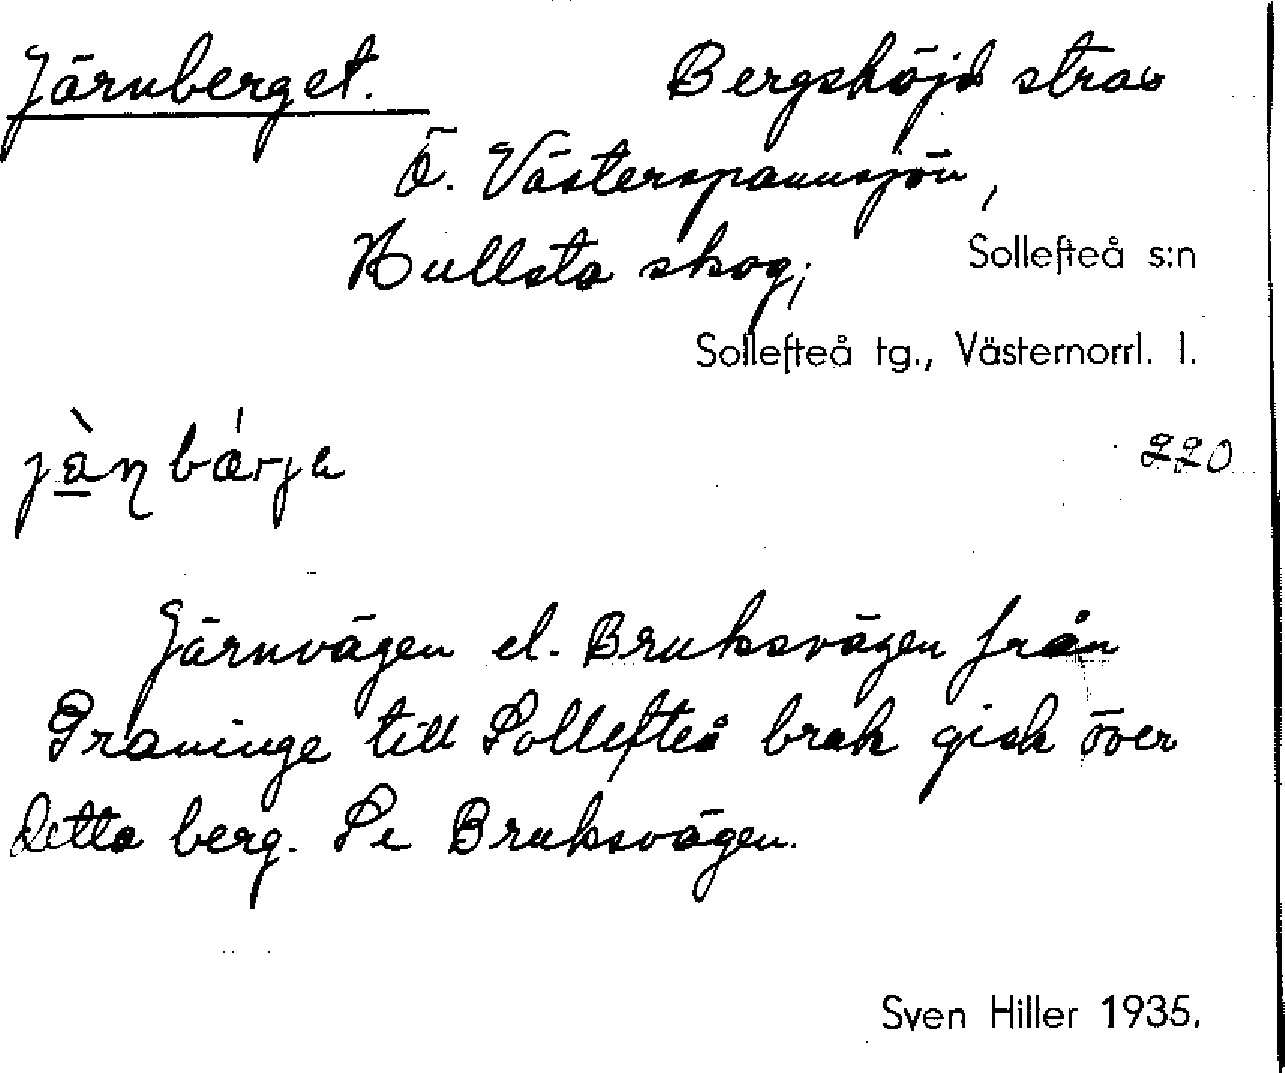 Järnberget. Bergshöjd strax
Ö. Västerspannsjön,
Hullsta skog; Sollefteå s:n
Sollefteå tg., Västernorrl. l.
220
Järnvägen el. Bruksvägen från
Graninge till Sollefteå bruk gick över
detta berg. Se Bruksvägen.
Sven Hiller 1935.